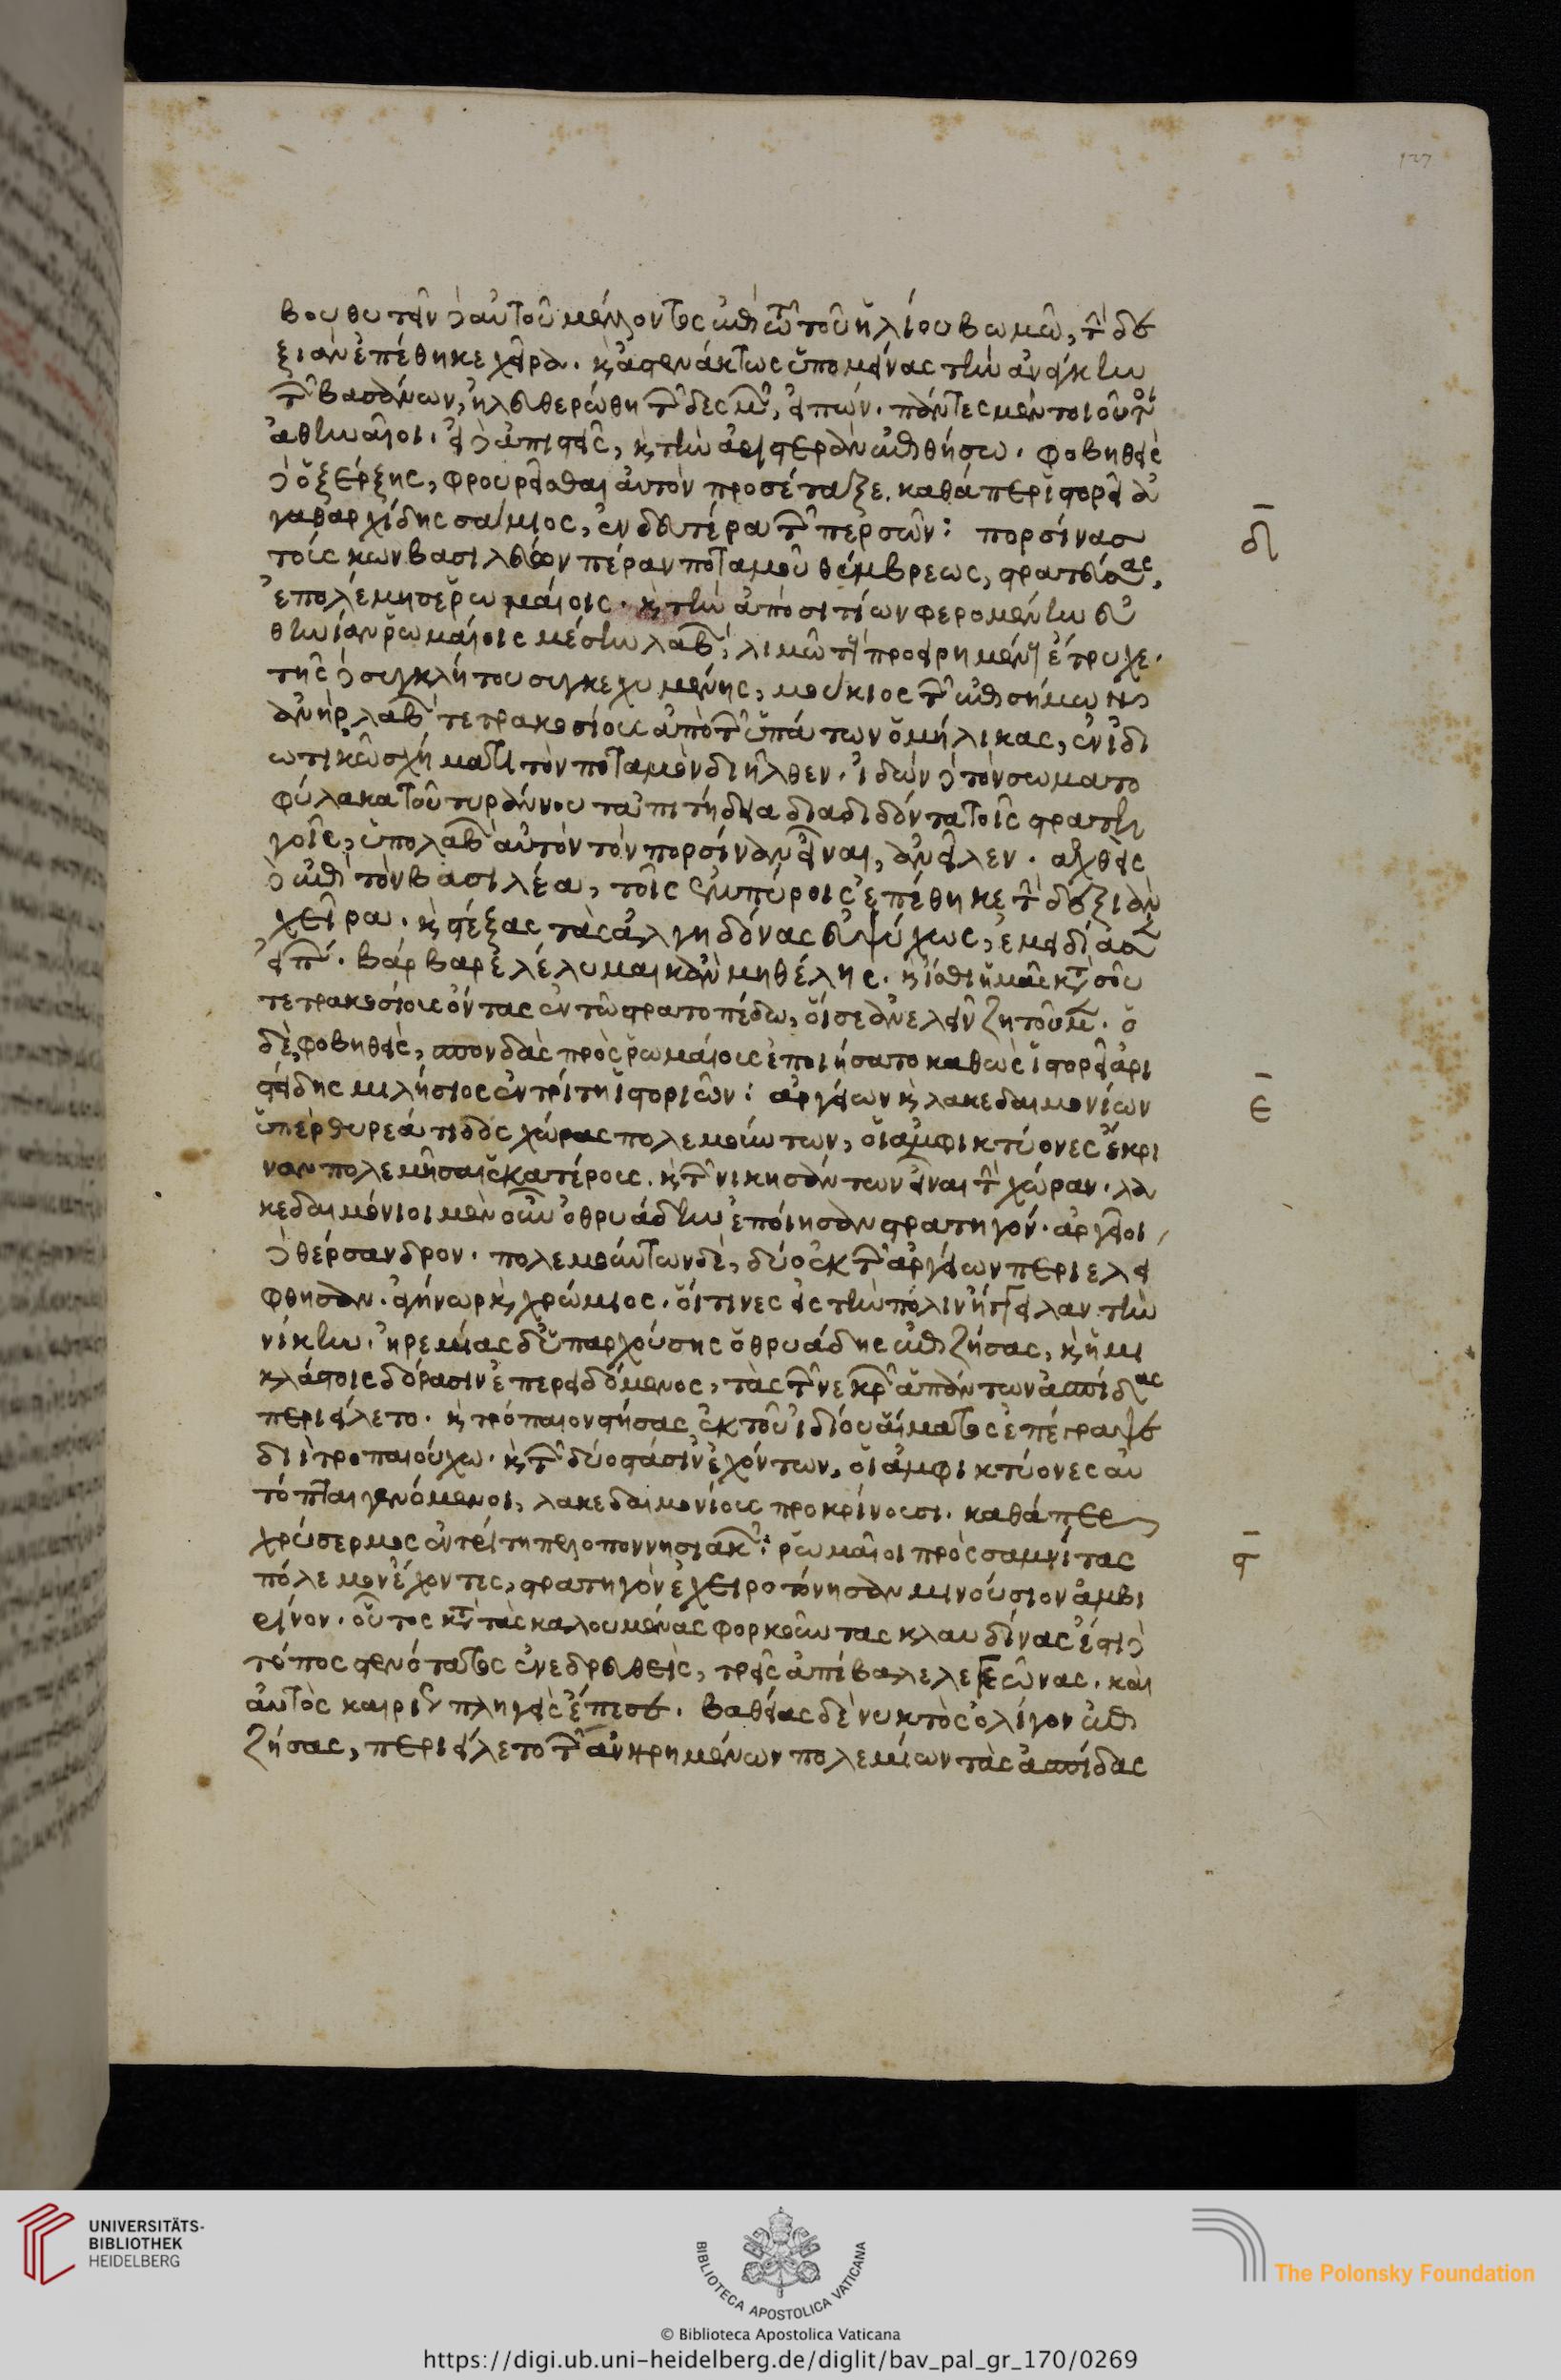 127
βουθυτεῖν δὲ αὐτοῦ μέλλοντος ἐπὶ τῶ τοῦ ἡλίου βωμῶ, τὴν δε
ξιὰν ἐπέθηκε χεῖρα. καὶ ἀστενάκτως ὑπομείνας τὴν ἀνάγκην
τῶν βασάνων, ἠλευθερώθη τῶν δεσμῶν, εἰπών. πάντες μέν τοιοῦτοι
ἀθηναῖοι. εἰ δὲ ἀπιστεῖς, καὶ τὴν ἀριστερὰν ἐπιθήσω. φοβηθεὶς
δὲ ὁ ξέρξης, φρουρεῖσθαι αὐτὸν προσέταξε. καθάπερ ἱστορεῖ ἀ
γαθαρχίδης σάμιος, ἐν δευτέρα τῶν περσῶν: πορσίνας
δ
τούσκων βασιλεὺς πέραν ποταμοῦ θύμβρεως, στρατεύσας,
ἐπολέμησε ῥωμαίοις. καὶ τὴν ἀπὸ σιτίων φερομένην εὐ
θηνίαν ῥωμαίοις μέσην λαβὼν, λιμῶ τοὺς προειρημένους ἔτρυχε.
τῆς δὲ συγκλήτου συγκεχυμένης, μούκιος τῶν ἐπισήμων
ἀνὴρ λαβὼν τετρακοσίους ἀπὸ τῶν ὑπάτων ὁμήλικας, ἐν ἰδι
ωτικῶ σχήματι τὸν ποταμὸν διῆλθεν. ἰδὼν δὲ τὸν σωματο
φύλακα τοῦ τυράννου τἀπιτήδεια διαδιδόντα τοῖς στρατη
γοῖς, ὑπολαβὼν αὐτὸν τὸν πορσίναν εἶναι, ἀνεῖλεν. ἀχθεὶς
δὲ ἐπὶ τὸν βασιλέα, τοῖς ἐμπύροις ἐπέθηκε τὴν δεξιὰν
χεῖρα. καὶ στέξας τὰς ἀλγηδόνας εὐψύχως, ἐμειδίασεν
εἰπών. βάρβαρε λέλυμαι κἂν μὴ θέλης. καὶ ἴσθι ἡμᾶς κατὰ σοῦ
τετρακοσίους ὄντας ἐν τῶ στρατοπέδω, οἵ σε ἀνελεῖν ζητοῦμεν. ὁ
δὲ φοβηθεὶς, σπονδὰς πρὸς ῥωμαίους ἐποιήσατο καθὼς ἱστορεῖ ἀρι
στείδης μιλήσιος ἐν τρίτη ἱστοριῶν: ἀργείων καὶ λακεδαιμονίων
ε
ὑπὲρ θυρεάτιδος χώρας πολεμούντων, οἱ ἀμφικτύονες ἔκρι
ναν πολεμῆσαι ἑκατέρους. καὶ τῶν νικησάντων εἶναι τὴν χώραν. λα
κεδαιμόνιοι μὲν οὖν ὀθρυάδην ἐποίησαν στρατηγόν. ἀργεῖοι
δὲ θέρσανδρον. πολεμούντων δὲ, δύο ἐκ τῶν ἀργείων περιελεί
φθησαν. ἀγήνωρ καὶ χρώμιος. οἵτινες εἰς τὴν πόλιν ἤγγειλαν τὴν
νίκην. ἠρεμίας δ' ὑπαρχούσης ὀθρυάδης ἐπιζήσας, καὶ ἡμι
κλάστοις δόρασιν ἐπερειδόμενος, τὰς τῶν νεκρῶν ἁπάντων ἀσπίδας
περιείλετο. καὶ τρόπαιον στήσας ἐκ τοῦ ἰδίου αἵματος ἐπέγραψε
διὶ τροπαιούχω. καὶ τῶν δύο στάσιν ἐχόντων, οἱ ἀμφικτύονες αὐ
τόπται γενόμενοι, λακεδαιμονίους προκρίνουσι. καθάπερ
χρύσερμος ἐν τρίτη πελοποννησιακῶν: ῥωμαῖοι πρὸς σαμνίτας
ϛ
πόλεμον ἔχοντες, στρατηγὸν ἐχειροτόνησαν μινούσιον ἀμβι
ρίνον. οὗτος κατὰ τὰς καλουμένας φορκούντας κλαυδίνας ἔστι δὲ
τόπος στενότατος ἐνεδρευθεὶς, τρεῖς ἀπέβαλε λεγεῶνας. καὶ
αὐτὸς καιρίως πληγεὶς ἔπεσε. βαθείας δὲ νυκτὸς ὀλίγον ἐπι
ζήσας, περιείλετο τῶν ἀνηρημένων πολεμίων τὰς ἀσπίδας
UNIVERSITÄTS-
BIBLIOTHEK
HEIDELBERG
BIBLIOTECA APOSTOLICA VATICANA
The Polonsky Foundation
© Biblioteca Apostolica Vaticana
https://digi.ub.uni-heidelberg.de/diglit/bav_pal_gr_170/0269